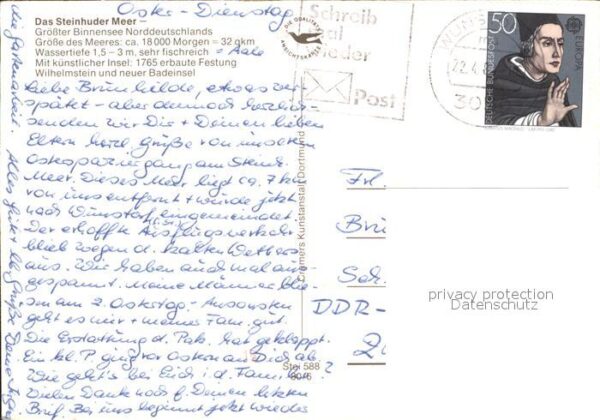 Oster-Dienstag
Das Steinhuder Meer –
Größter Binnensee Norddeutschlands
Größe des Meeres: ca. 18 000 Morgen = 32 qkm
Wassertiefe 1,5 – 3 m, sehr fischreich = Aale
Mit künstlicher Insel: 1765 erbaute Festung
Wilhelmstein und neuer Badeinsel
Liebe Brunhilde, etwas ver-
spätet – aber dennoch herzlich
senden wir Dir + Deinen lieben
Eltern herzl. Grüße von unserem
Osterspaziergang am Steinh.
Meer. Dieses Meer liegt ca. 7 km
von uns entfernt + wurde jetzt
nach Wunstorf eingemeindet.
Der erhoffte Ausflugsverkehr
blieb wegen d. kalten Wetters
aus. Wir haben auch mal aus-
gespannt. Meine Männer blie-
sen am 2. Ostertag. Ansonsten
geht es mir + meiner Fam. gut.
Die Erstattung d. Pak. hat geklappt.
Ein kl. P. ging vor Ostern an Dich ab.
Wie geht's bei Euch i. d. Familie?
Vielen Dank noch f. Deinen letzten
Brief. Bei uns beginnt jetzt wieder
die Gartenarbeit. Alles Gute + lb. Grüße Deine
DIE QUALITÄTS
ANSICHTSKARTE
Schreib
mal
wieder
Post
WUNST
22.4.
30
50
EUROPA
DEUTSCHE BUNDESPOST
Cramers Kunstanstalt Dortmund
Stei 588
Frl.
Brü
Sch
DDR-
privacy protection
Datenschutz